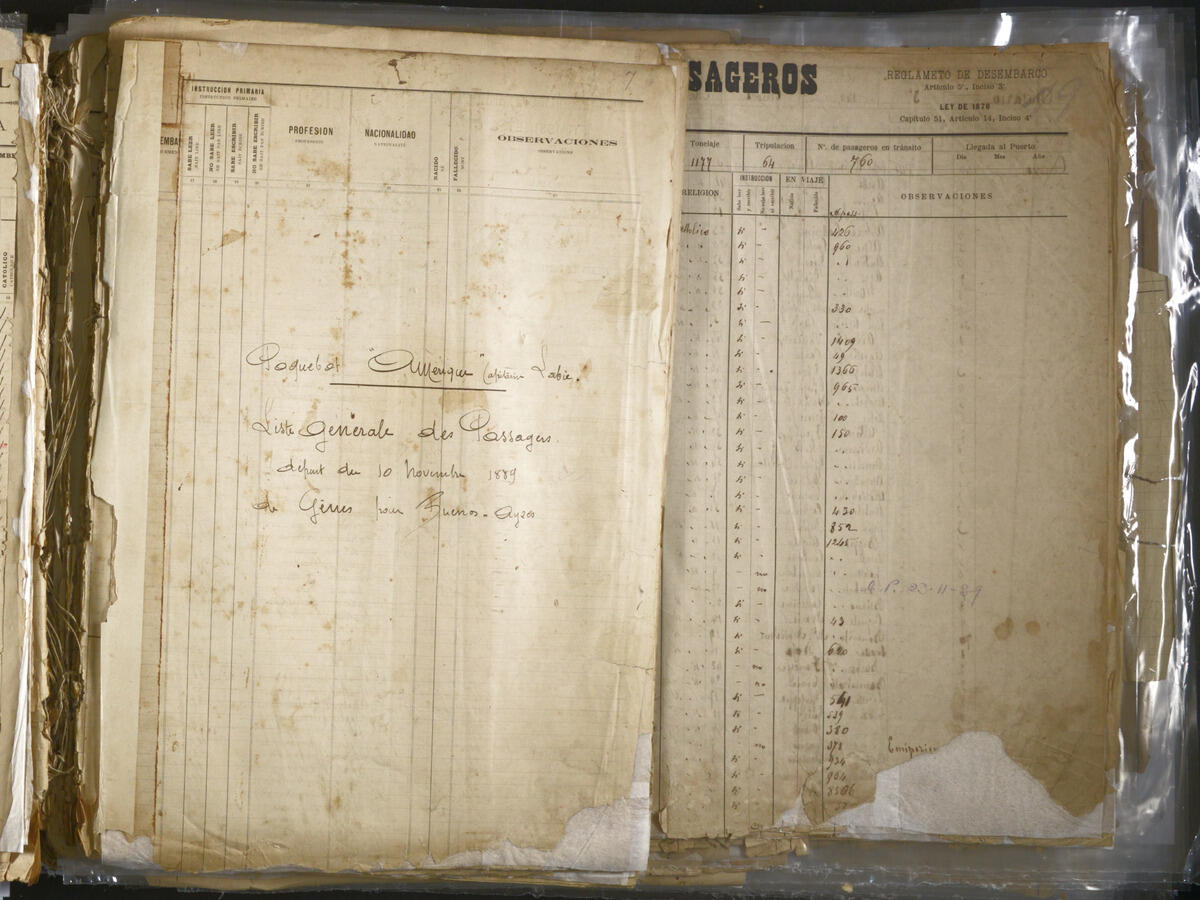 7
INSTRUCCION PRIMARIA
INSTRUCTION PRIMAIRE
SABE LEER
SAIT LIRE
NO SABE LEER
NE SAIT PAS LIRE
SABE ESCRIBIR
SAIT ECRIRE
NO SABE ESCRIBIR
NE SAIT PAS ECRIRE
PROFESION
PROFESSION
NACIONALIDAD
NATIONALITÉ
NACIDO
NÉ
FALLECIDO
MORT
OBSERVACIONES
OBSERVATIONS
Paquebot "Amérique" Capitaine Labie.
Liste Générale des Passagers.
départ du 10 Novembre 1889
de Gênes pour Buenos-Ayres
CATOLICO
CATHOLIQUE
SAGEROS
REGLAMETO DE DESEMBARCO
Artículo 5º, Inciso 3º
LEY DE 1876
Capítulo 51, Artículo 14, Inciso 4º
Tonelaje
Tripulacion
Nº. de pasageros en tránsito
Llegada al Puerto
1177
64
760
Dia
Mes
Año
RELIGION
INSTRUCCION
EN VIAJE
OBSERVACIONES
Sabe leer y escribir
No sabe leer ni escribir
426
960
330
1409
49
1366
965
100
150
430
852
1245
no
no
23-11-89
43
620
no
no
541
539
380
no 378
934
964